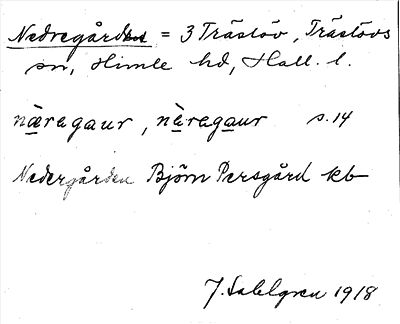 Nedregården = 3 Träslöv, Träslövs
sn, Himle hd, Hall. l.
næ̀ragaur, nèragaur s. 14
Nedergården Björn Persgård kb
J. Sahlgren 1918